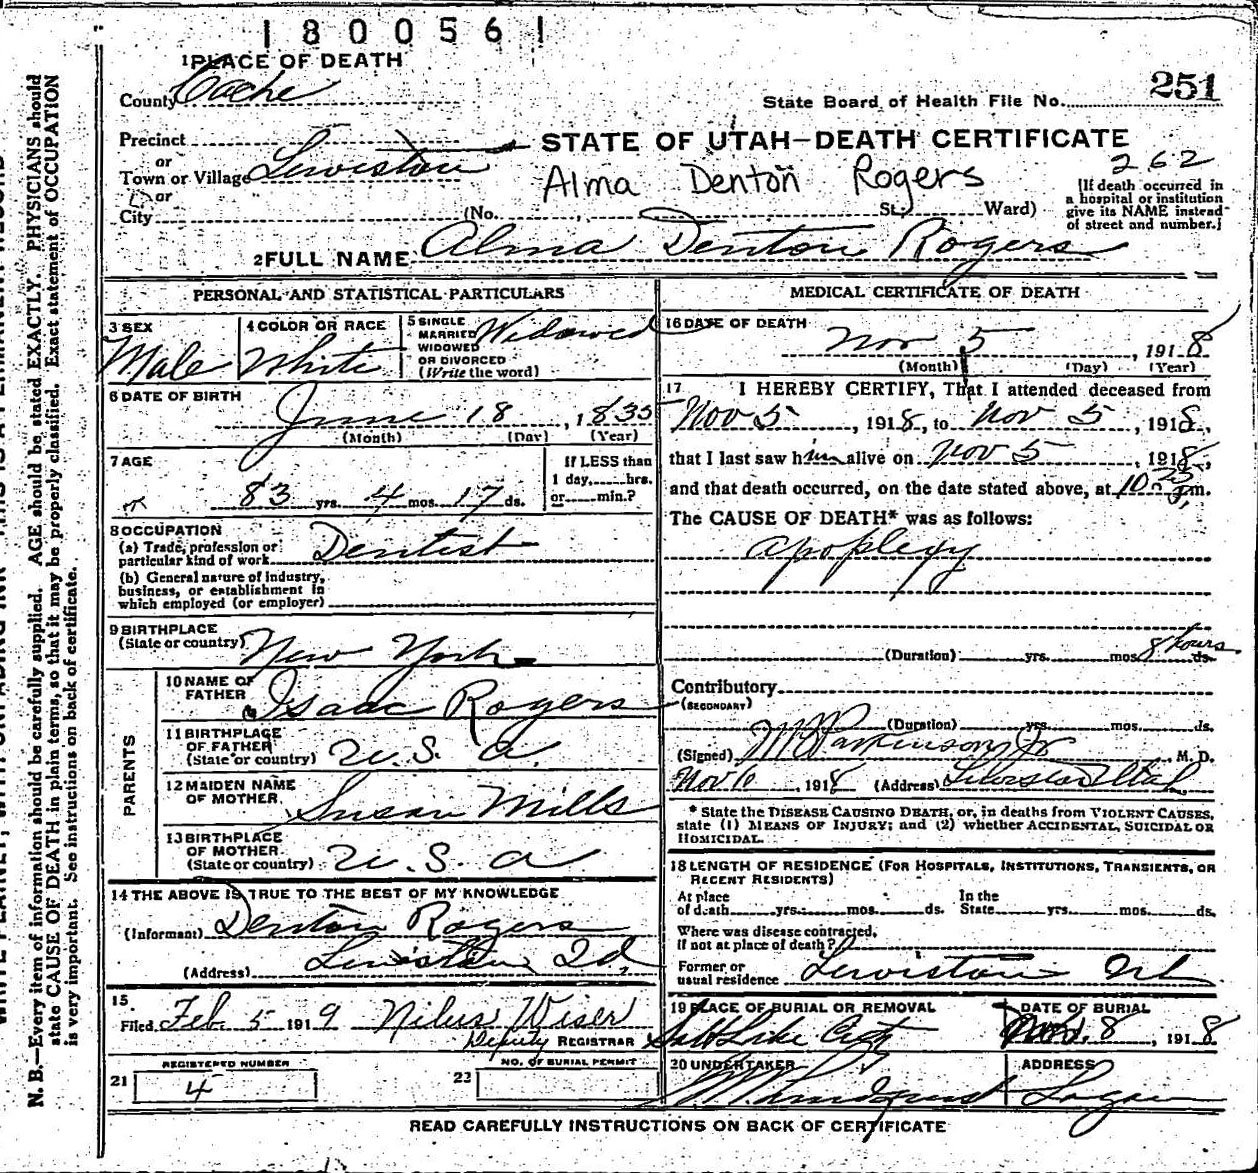 1800561
1 PLACE OF DEATH
County Cache
251
State Board of Health File No.
Precinct
or
Town or Village Lewiston
or
City
STATE OF UTAH—DEATH CERTIFICATE
262
Alma Denton Rogers
(No. St., Ward)
[If death occurred in
a hospital or institution
give its NAME instead
of street and number.]
2 FULL NAME Alma Denton Rogers
PERSONAL AND STATISTICAL PARTICULARS
3 SEX
Male
4 COLOR OR RACE
White
5 SINGLE
MARRIED
WIDOWED
OR DIVORCED
(Write the word)
Widowed
6 DATE OF BIRTH
June 18, 1835
(Month) (Day) (Year)
7 AGE
83 yrs. 4 mos. 17 ds.
If LESS than
1 day, hrs.
or min.?
8 OCCUPATION
(a) Trade, profession or
particular kind of work Dentist
(b) General nature of industry,
business, or establishment in
which employed (or employer)
9 BIRTHPLACE
(State or country) New York
PARENTS
10 NAME OF
FATHER Isaac Rogers
11 BIRTHPLACE
OF FATHER
(State or country) U. S. A.
12 MAIDEN NAME
OF MOTHER Susan Mills
13 BIRTHPLACE
OF MOTHER
(State or country) U. S. A
14 THE ABOVE IS TRUE TO THE BEST OF MY KNOWLEDGE
(Informant) Denton Rogers
(Address) Lewiston
15
Filed Feb 5 1919 Nilus Wiser
Deputy REGISTRAR
REGISTERED NUMBER
21 4
NO. OF BURIAL PERMIT
22
MEDICAL CERTIFICATE OF DEATH
16 DATE OF DEATH
Nov 5, 1918
(Month) (Day) (Year)
17 I HEREBY CERTIFY, That I attended deceased from
Nov 5, 1918, to Nov 5, 1918,
that I last saw him alive on Nov 5, 1918,
and that death occurred, on the date stated above, at 10 m.
The CAUSE OF DEATH* was as follows:
apoplexy
(Duration) yrs. mos. 8 hours ds.
Contributory
(SECONDARY)
(Duration) yrs. mos. ds.
(Signed) Parkinson Jr M. D.
Nov 6, 1918 (Address) Lewiston Utah
* State the DISEASE CAUSING DEATH, or, in deaths from VIOLENT CAUSES,
state (1) MEANS OF INJURY; and (2) whether ACCIDENTAL, SUICIDAL OR
HOMICIDAL.
18 LENGTH OF RESIDENCE (FOR HOSPITALS, INSTITUTIONS, TRANSIENTS, OR
RECENT RESIDENTS)
At place
of death yrs. mos. ds.
In the
State yrs. mos. ds.
Where was disease contracted,
if not at place of death?
Former or
usual residence Lewiston
19 PLACE OF BURIAL OR REMOVAL
Salt Lake City
DATE OF BURIAL
Nov. 8, 1918
20 UNDERTAKER
ADDRESS
Logan
READ CAREFULLY INSTRUCTIONS ON BACK OF CERTIFICATE
N. B.—Every item of information should be carefully supplied. AGE should be stated EXACTLY. PHYSICIANS should
state CAUSE OF DEATH in plain terms, so that it may be properly classified. Exact statement of OCCUPATION
is very important. See instructions on back of certificate.